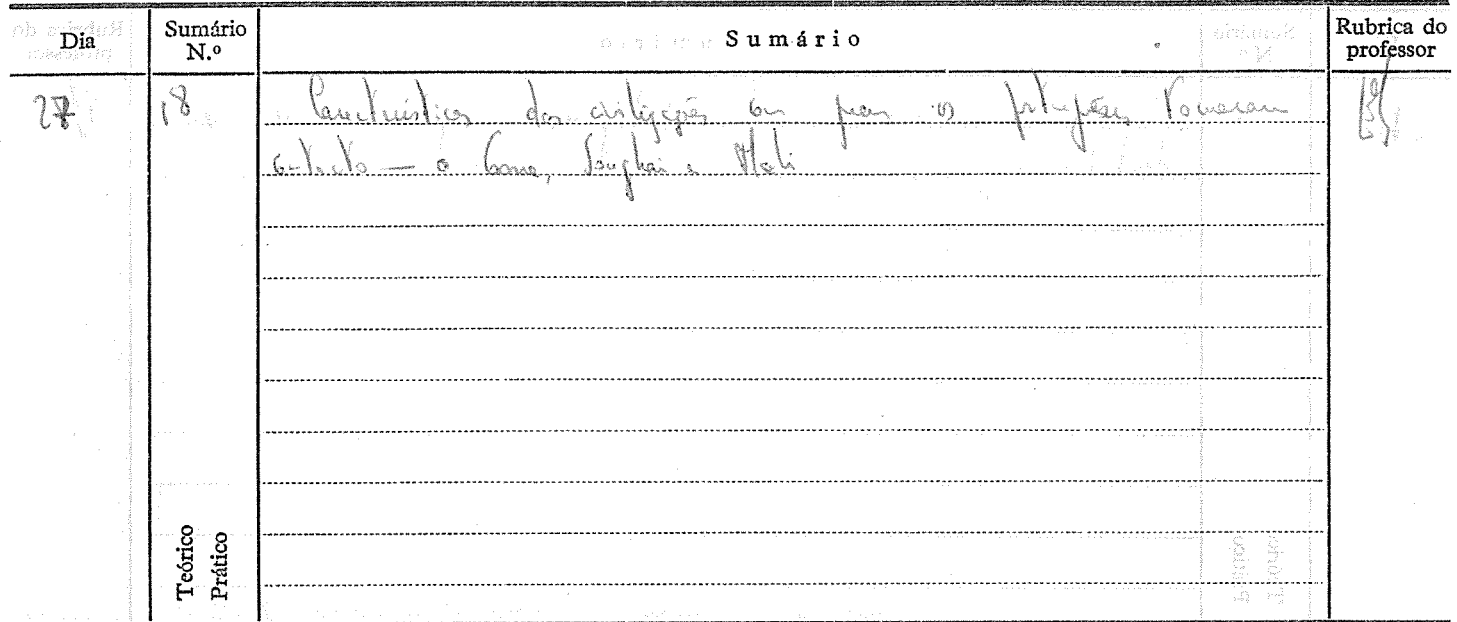 Dia Sumário N.º Sumário Rubrica do professor
27 18 Características das civilizações com os portugueses tomaram
contacto — o Songhai e Mali
Teórico
Prático